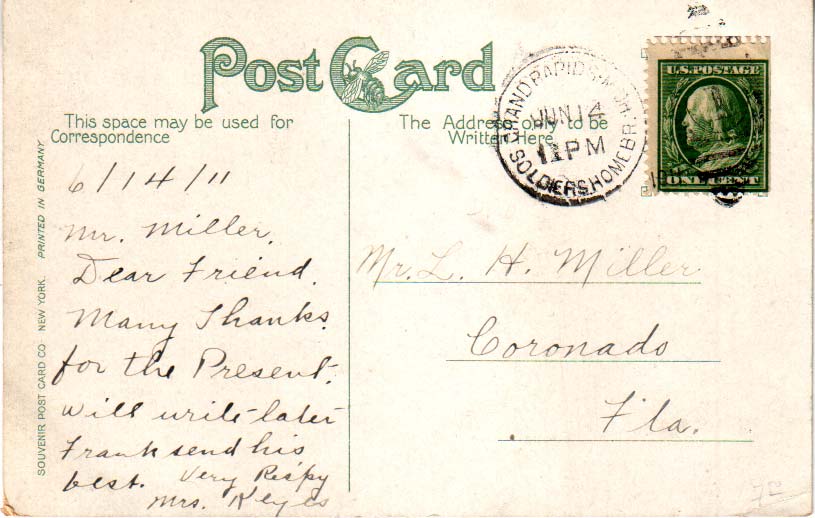 Post Card
This space may be used for
Correspondence
The Address only to be
Written Here
GRAND RAPIDS, MICH.
JUN 14
PM
SOLDIERS HOME BR.
1911
U.S. POSTAGE
ONE CENT
SOUVENIR POST CARD CO NEW YORK. PRINTED IN GERMANY
6/14/11
Mr. Miller,
Dear Friend.
Many Thanks
for the Present.
will write later
Frank send his
best. Very Resp'y
Mrs. Keyes
Mr. L. H. Miller
Coronado
Fla.